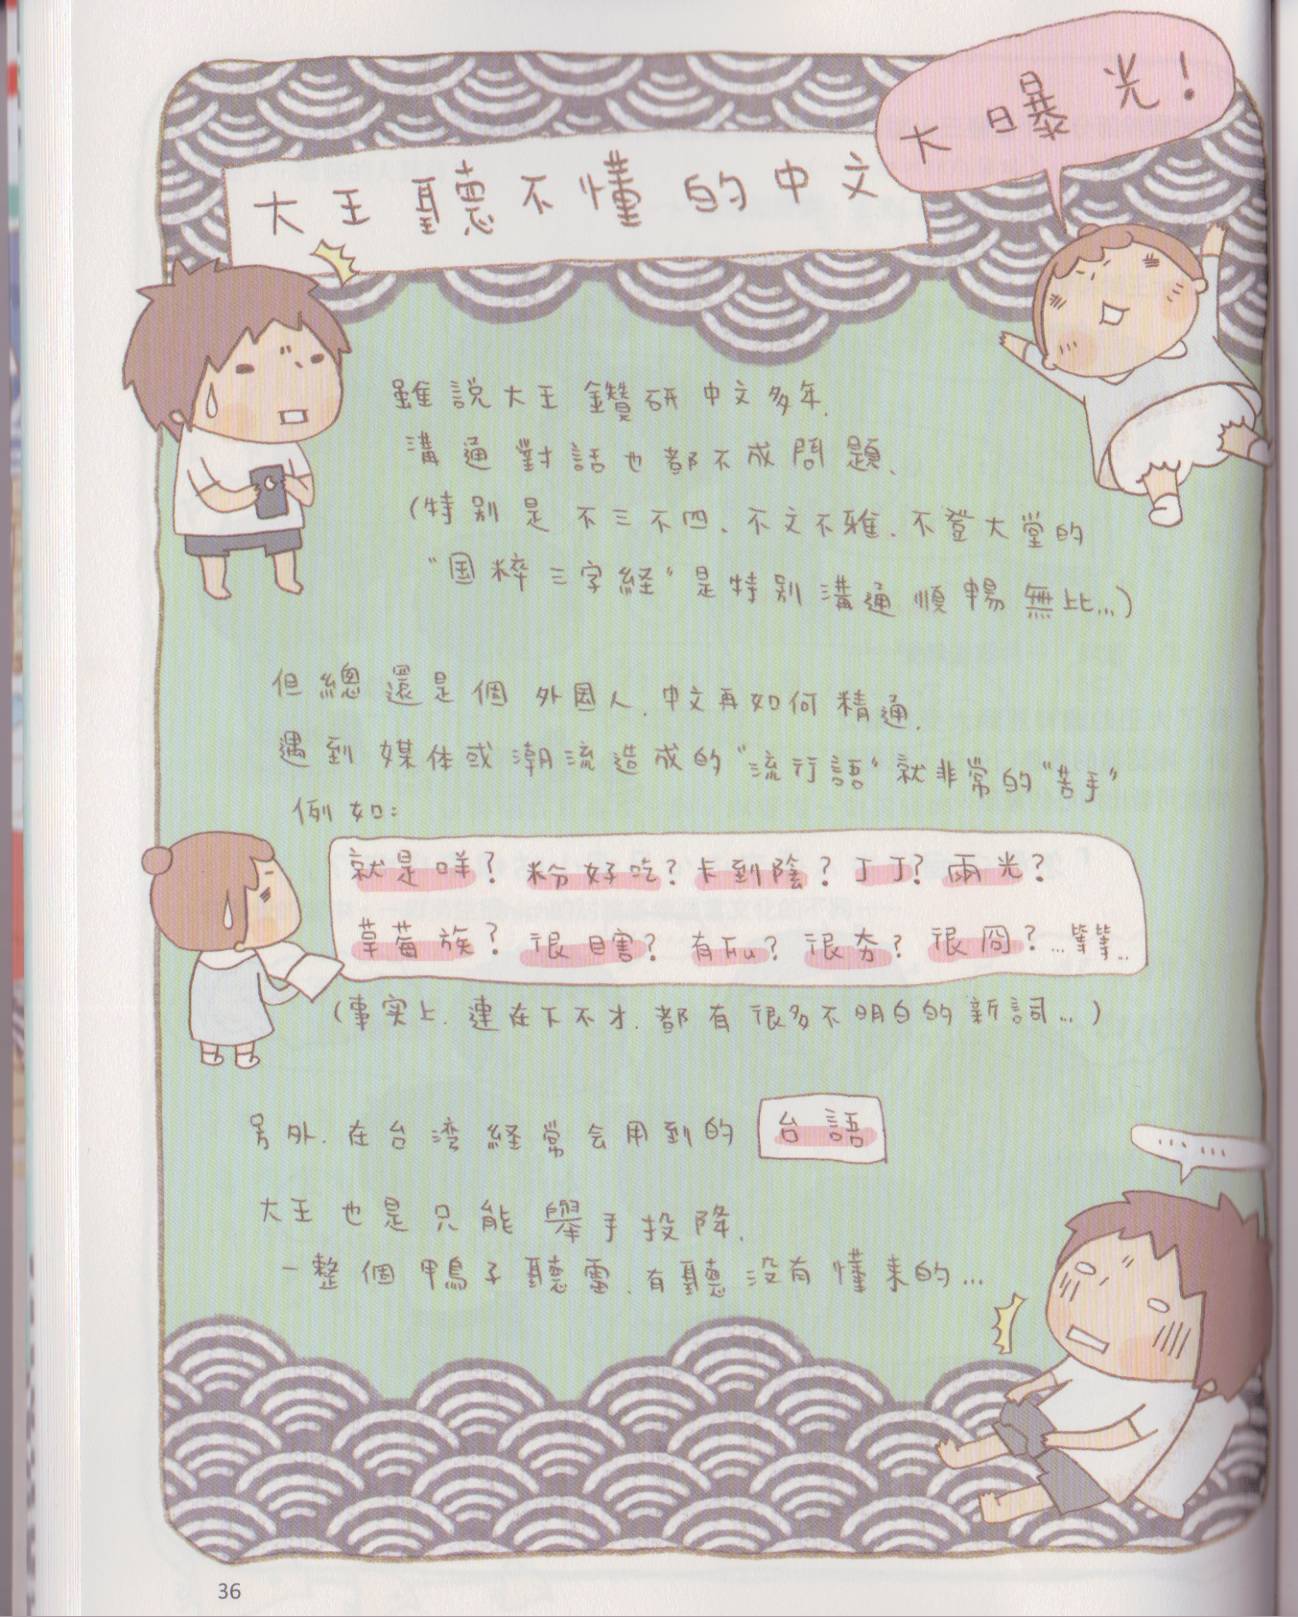 大曝光！
大王聽不懂的中文
雖說大王鑽研中文多年、
溝通對話也都不成問題、
(特別是不三不四、不文不雅、不登大堂的
“国粹三字経“是特別溝通順暢無比…)
但總還是個外国人、中文再如何精通、
遇到媒体或潮流造成的“流行語“就非常的“苦手“
例如:
就是咩? 粉好吃? 卡到陰? ㄒㄒ? 雨光?
草莓族? 很日害? 有Fu? 很夯? 很冏? …等等…
(事実上、連在下不才、都有很多不明白的新詞…)
另外、在台湾経常会用到的 台語
大王也是只能舉手投降、
一整個鴨子聽雷、有聽没有懂来的…
……
36